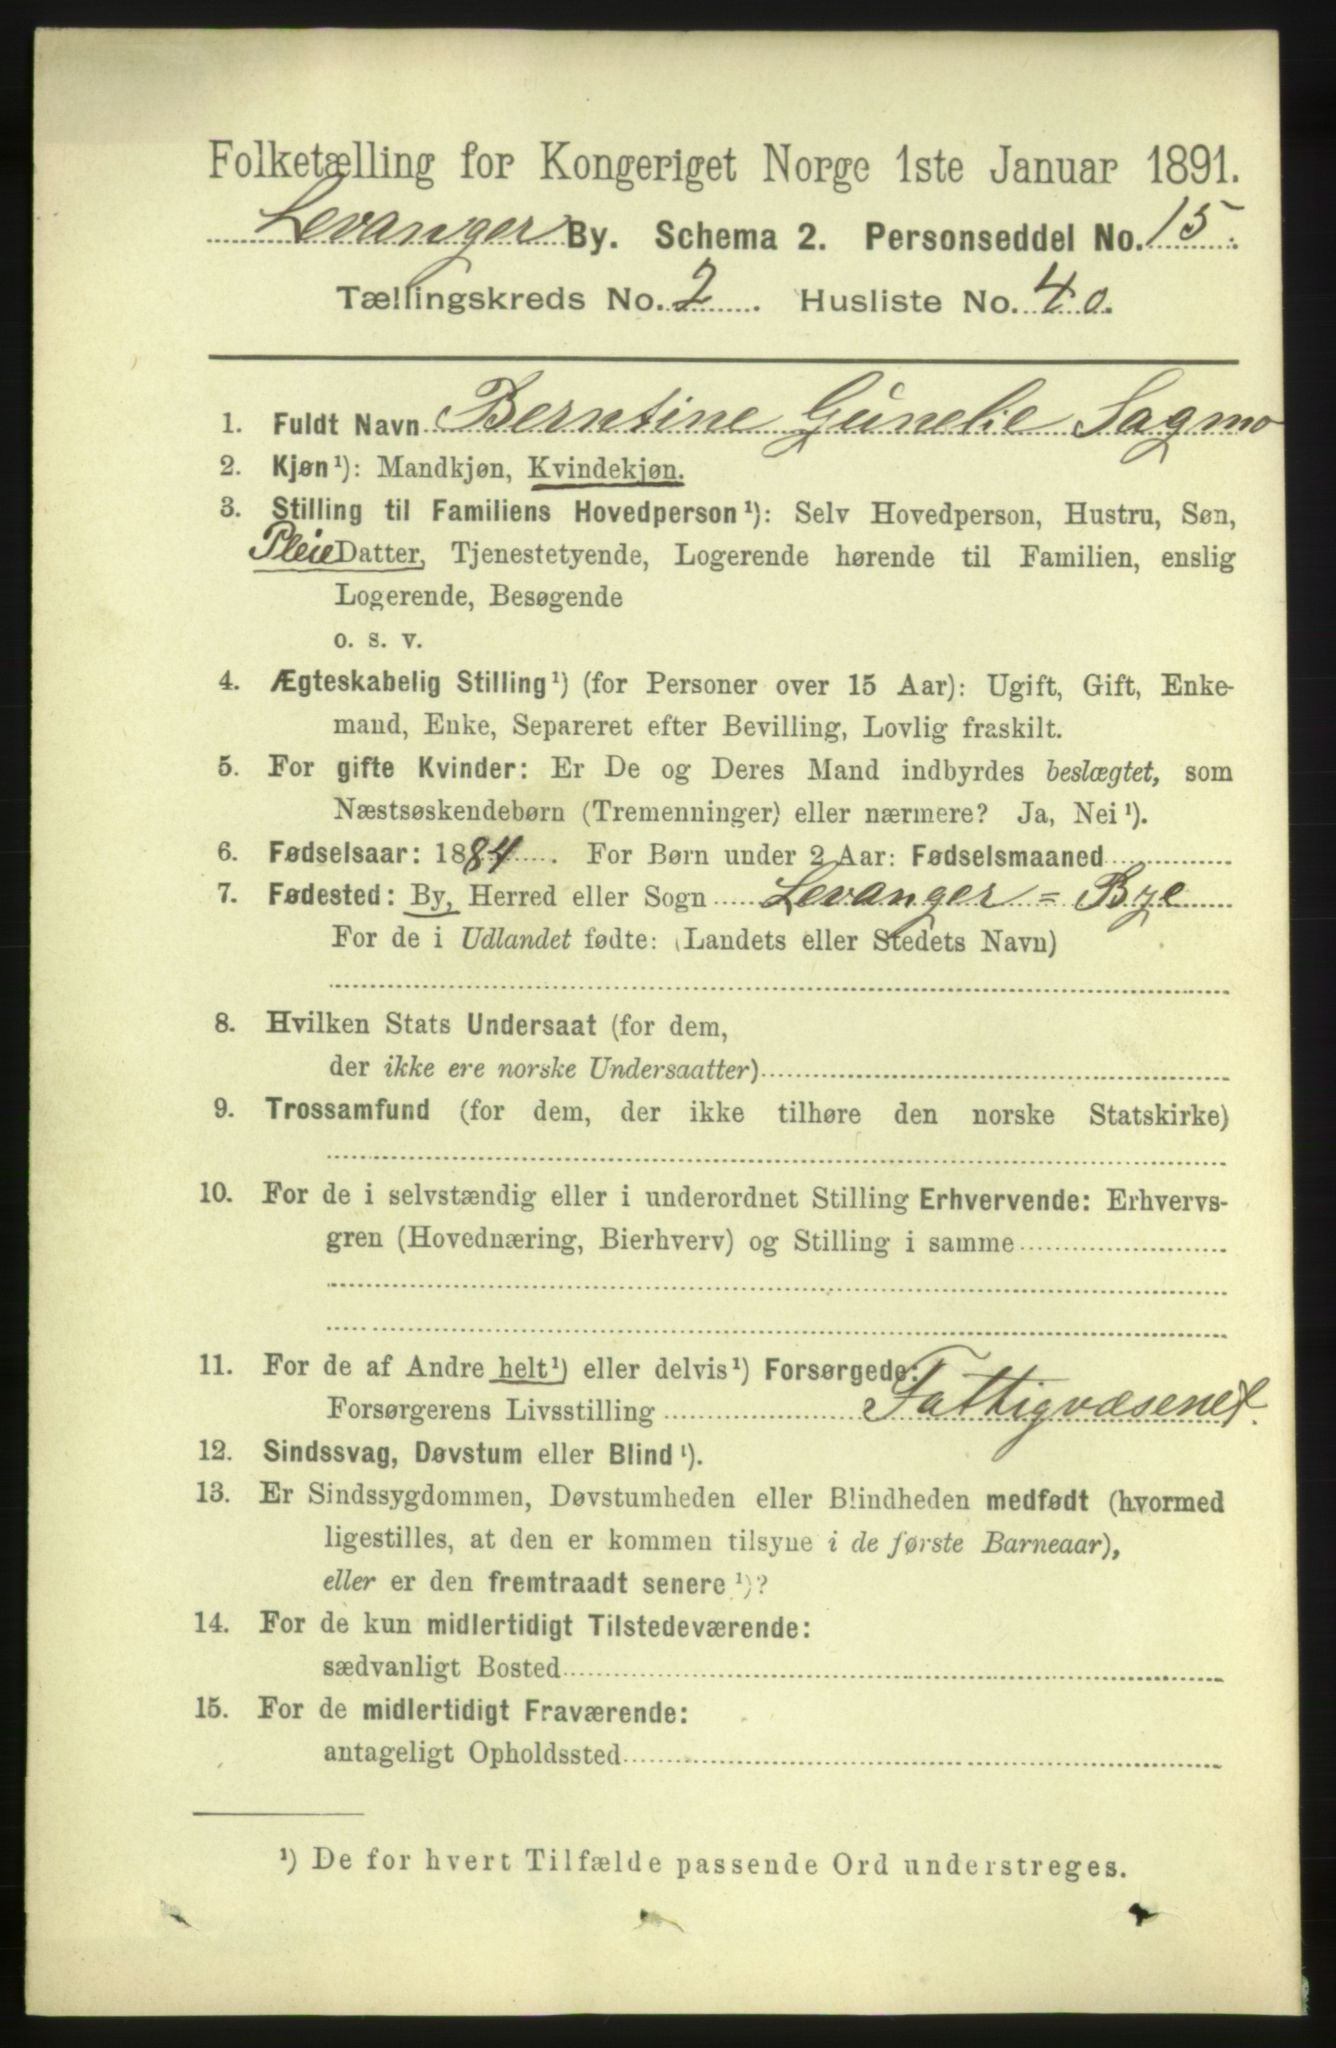 Folketælling for Kongeriget Norge 1ste Januar 1891.
Levanger By. Schema 2. Personseddel No. 15.
Tællingskreds No. 2. Husliste No. 40.
1. Fuldt Navn Berntine Gunelie Sagmo
2. Kjøn¹): Mandkjøn, Kvindekjøn.
3. Stilling til Familiens Hovedperson¹): Selv Hovedperson, Hustru, Søn,
PleieDatter, Tjenestetyende, Logerende hørende til Familien, enslig
Logerende, Besøgende
o. s. v.
4. Ægteskabelig Stilling¹) (for Personer over 15 Aar): Ugift, Gift, Enke-
mand, Enke, Separeret efter Bevilling, Lovlig fraskilt.
5. For gifte Kvinder: Er De og Deres Mand indbyrdes beslægtet, som
Næstsøskendebørn (Tremenninger) eller nærmere? Ja, Nei¹).
6. Fødselsaar: 1884. For Børn under 2 Aar: Fødselsmaaned
7. Fødested: By, Herred eller Sogn Levanger = Bye
For de i Udlandet fødte: (Landets eller Stedets Navn)
8. Hvilken Stats Undersaat (for dem,
der ikke ere norske Undersaatter)
9. Trossamfund (for dem, der ikke tilhøre den norske Statskirke)
10. For de i selvstændig eller i underordnet Stilling Erhvervende: Erhvervs-
gren (Hovednæring, Bierhverv) og Stilling i samme
11. For de af Andre helt¹) eller delvis¹) Forsørgede:
Forsørgerens Livsstilling Fattigvæsenet.
12. Sindssvag, Døvstum eller Blind¹).
13. Er Sindssygdommen, Døvstumheden eller Blindheden medfødt (hvormed
ligestilles, at den er kommen tilsyne i de første Barneaar),
eller er den fremtraadt senere¹)?
14. For de kun midlertidigt Tilstedeværende:
sædvanligt Bosted
15. For de midlertidigt Fraværende:
antageligt Opholdssted
¹) De for hvert Tilfælde passende Ord understreges.